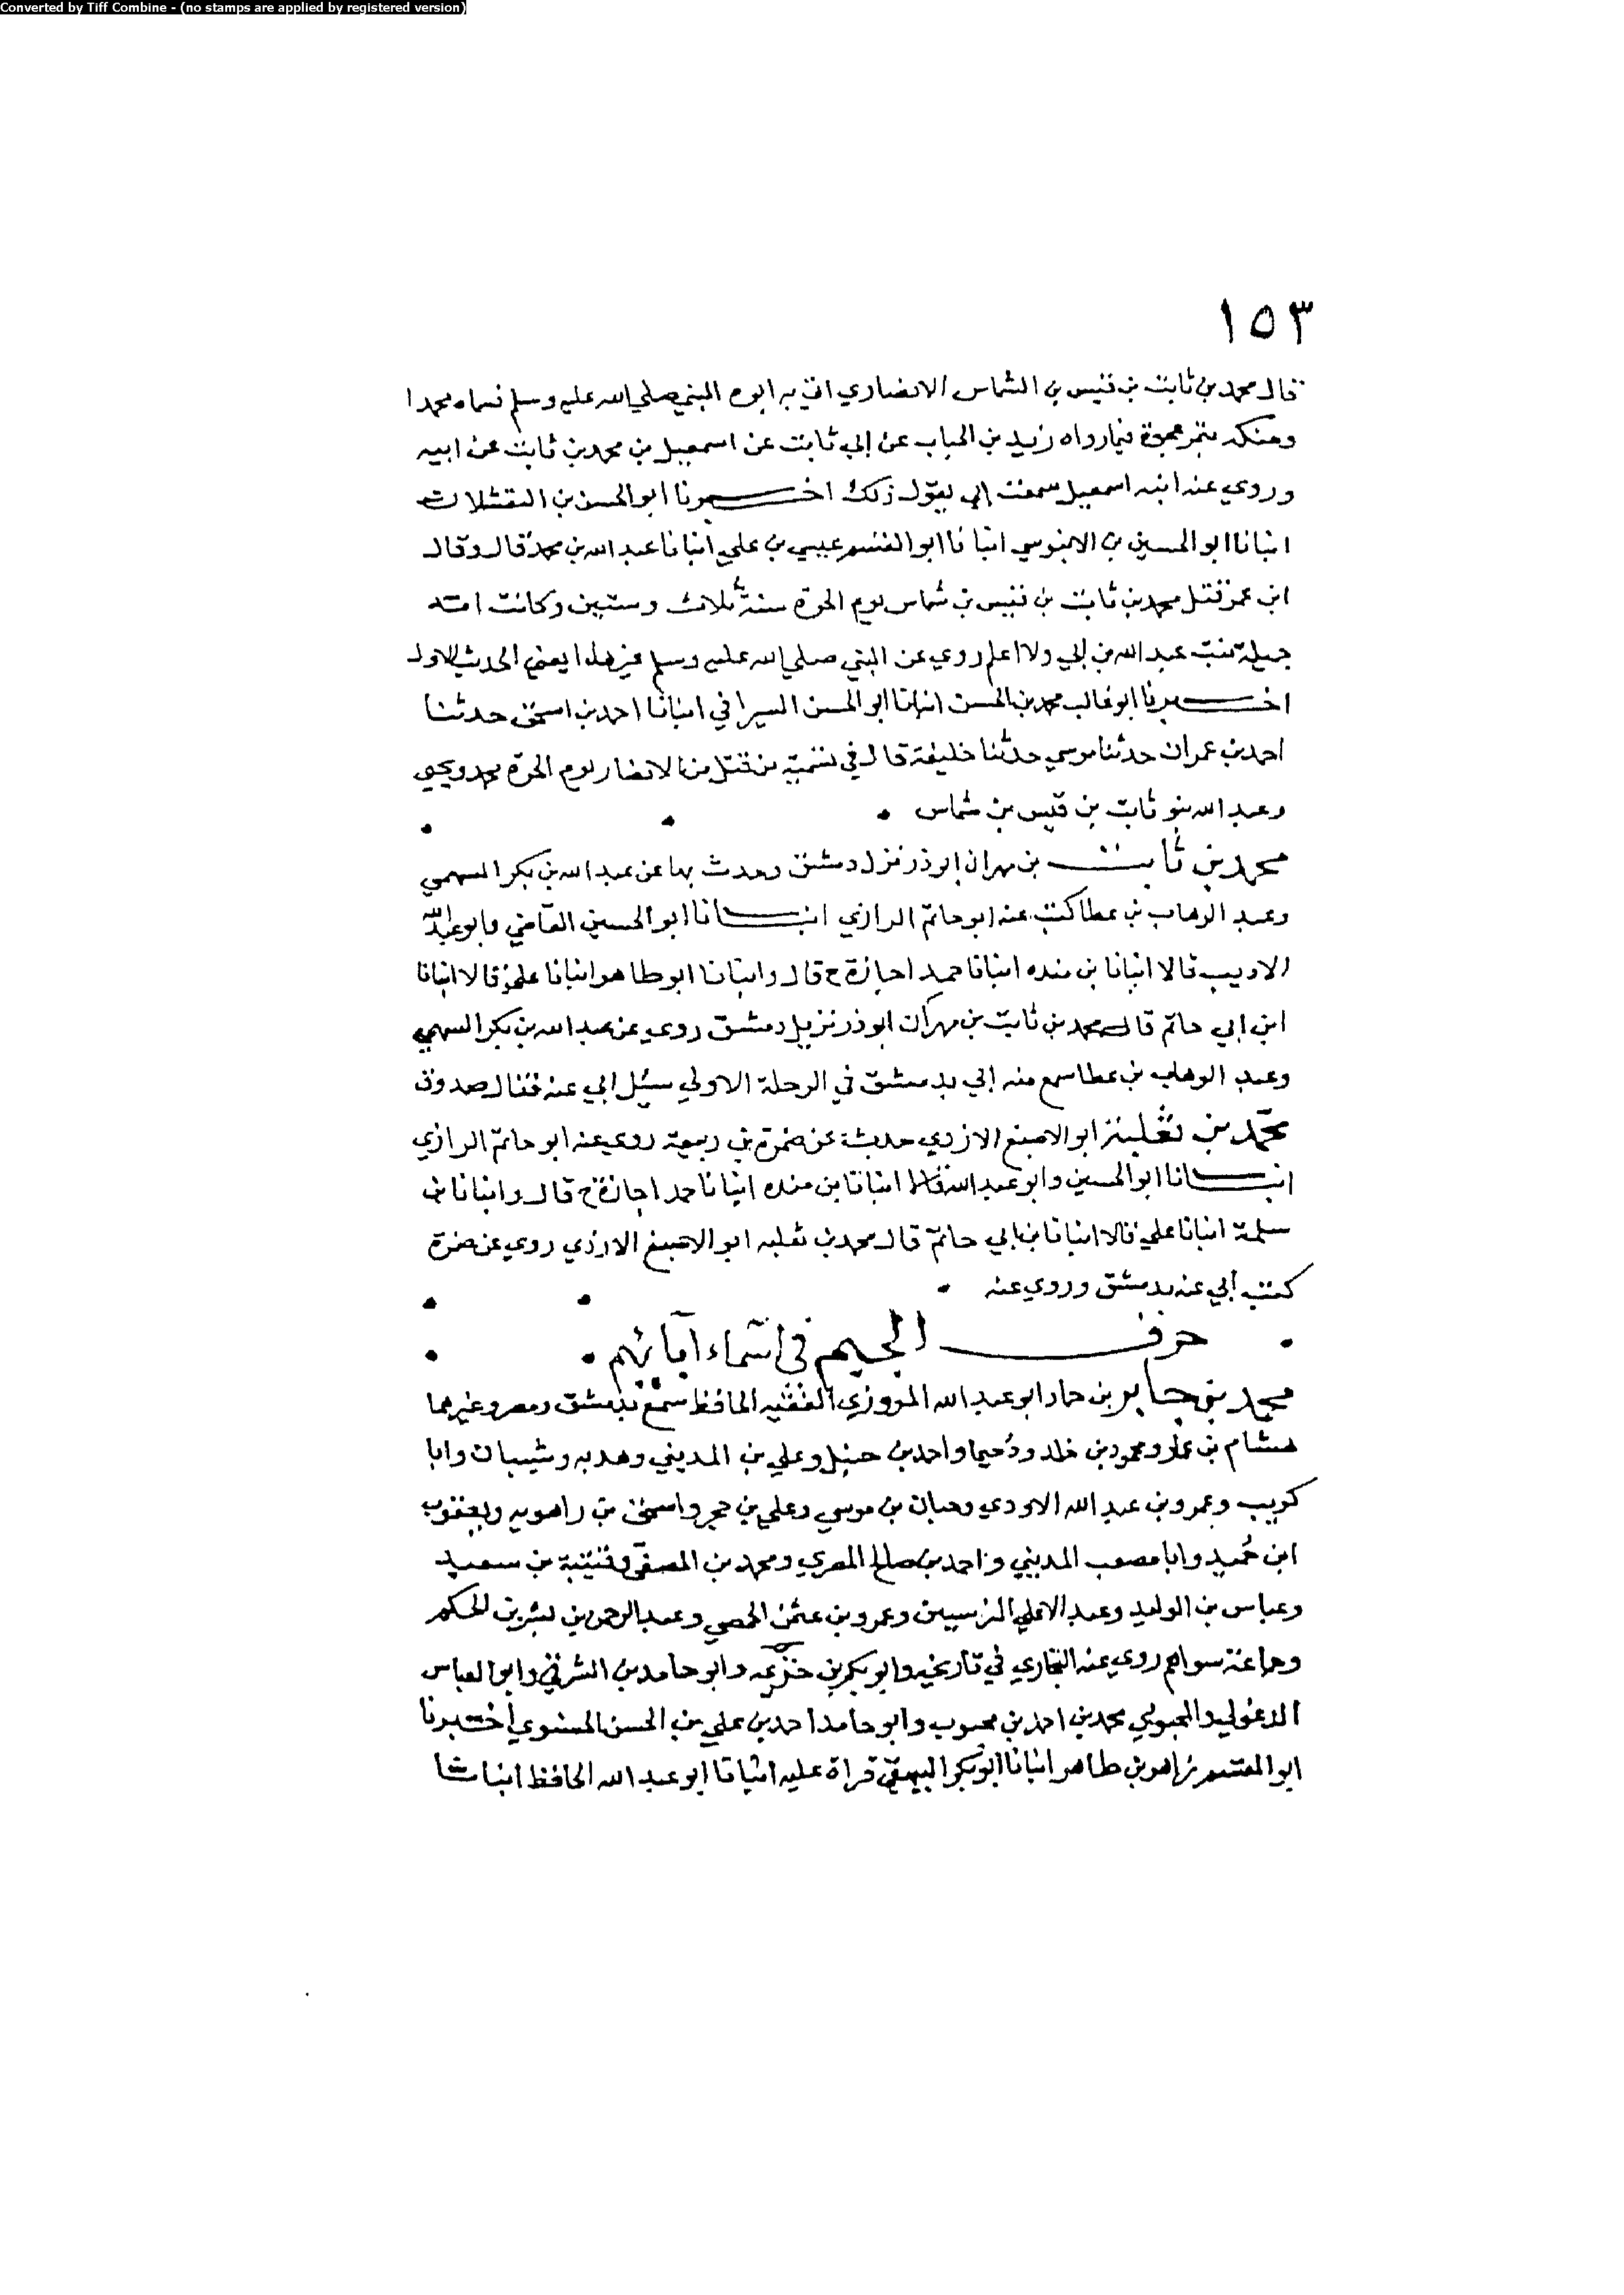 Converted by Tiff Combine - (no stamps are applied by registered version)
١٥٣
قال محمد بن ثابت بن قيس بن الشماس الانصاري اتى به ابوه النبي صلى الله عليه وسلم فسماه محمدا
وحنكه بتمر عجوة فيما رواه زيد بن الحباب عن ابي ثابت عن اسمعيل بن محمد بن ثابت عن ابيه
وروي عنه ابنه اسمعيل سمعت ابي يقول ذلك اخبرنا ابو الحسن بن النقشلات
انبانا ابو الحسين بن الابنوسي انبانا ابو القسم عيسي بن علي انبانا عبد الله بن محمد قال وقال
ابن عمر قتل محمد بن ثابت بن قيس بن شماس يوم الحرة سنة ثلاث وستين وكانت امه
جميلة بنت عبد الله بن ابي ولا اعلم روي عن النبي صلي الله عليه وسلم غير هذا يعني الحديث الاول
اخبرنا ابو غالب محمد بن الحسن انبانا ابو الحسن السيرافي انبانا احمد بن اسحق حدثنا
احمد بن عمران حدثنا موسي حدثنا خليفة قال في تسمية من قتل من الانصار يوم الحرة محمد ويحيي
وعبد الله بنو ثابت بن قيس بن شماس
محمد بن ثابت بن مهران ابو ذر نزل دمشق وحدث بها عن عبد الله بن بكر السهمي
وعبد الوهاب بن عطا كتب عنه ابو حاتم الرازي انبانا ابو الحسين القاضي وابو عبد الله
الاديب قالا انبانا بن منده انبانا حمد اجازة ح قال وانبانا ابو طاهر انبانا علي قالا انبانا
ابن ابي حاتم قال محمد بن ثابت بن مهران ابو ذر نزيل دمشق روي عن عبد الله بن بكر السهمي
وعبد الوهاب بن عطا سمع منه ابي بدمشق في الرحلة الاولي سئل ابي عنه فقال صدوق
محمد بن ثعلبة ابو الاصبغ الازدي حدث عن ضمرة بن ربيعة روي عنه ابو حاتم الرازي
انبانا ابو الحسين وابو عبد الله قالا انبانا بن منده انبانا حمد اجازة ح قال وانبانا بن
سلمة انبانا علي قالا انبانا بن ابي حاتم قال محمد بن ثعلبه ابو الاصبغ الازدي روي عن ضمرة
كتب ابي عنه بدمشق وروي عنه
حرف الجيم في اسماء ابائهم
محمد بن جابر بن حماد ابو عبد الله المروزي الفقيه الحافظ سمع بدمشق ومصر وغيرهما
هشام بن عمار ومحمود بن خلد ودحيما واحمد بن حنبل وعلي بن المديني وهدبه وشيبان وابا
كريب وعمرو بن عبد الله الاودي وحبان بن موسي وعلي بن حجر واسحق بن راهويه ويعقوب
ابن حميد وابا مصعب المديني واحمد بن صالح المصري ومحمد بن المصفى وقتيبة بن سعيد
وعباس بن الوليد وعبد الاعلي النرسيين وعمرو بن عثمن الحمصي وعبد الرحمن بن بشر بن الحكم
وجماعة سواهم روي عنه البخاري في تاريخه وابو بكر بن خزيمه وابو حامد بن الشرقي وابو العباس
الدغولي والمحبوبي محمد بن احمد بن محبوب وابو حامد احمد بن علي بن الحسن الحسنوي اخبرنا
ابو القسم زاهر بن طاهر انبانا ابو بكر البيهقي قراة عليه انبانا ابو عبد الله الحافظ انبانا